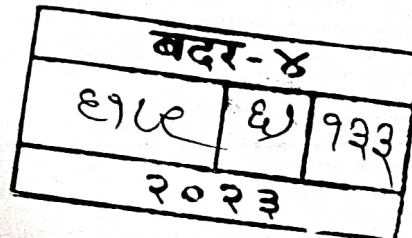 बदर-४
६१८९ ६७ १३३
२०२३